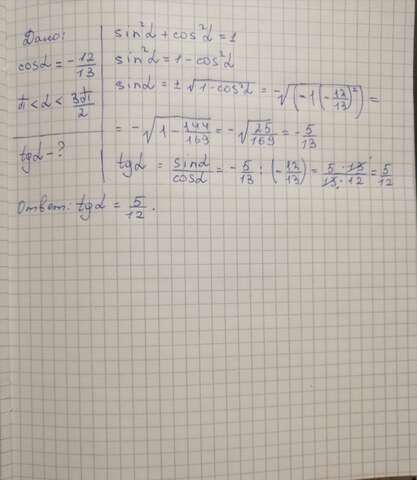 Дано:
cosα = -12/13
π < α < 3π/2
tgα - ?
sin²α + cos²α = 1
sin²α = 1 - cos²α
sinα = ± √(1-cos²α) = -√((-1(-12/13)²)) =
= -√(1 - 144/169) = -√(25/169) = -5/13
tgα = sinα/cosα = -5/13 : (-12/13) = 5·13/13·12 = 5/12
Ответ: tgα = 5/12.